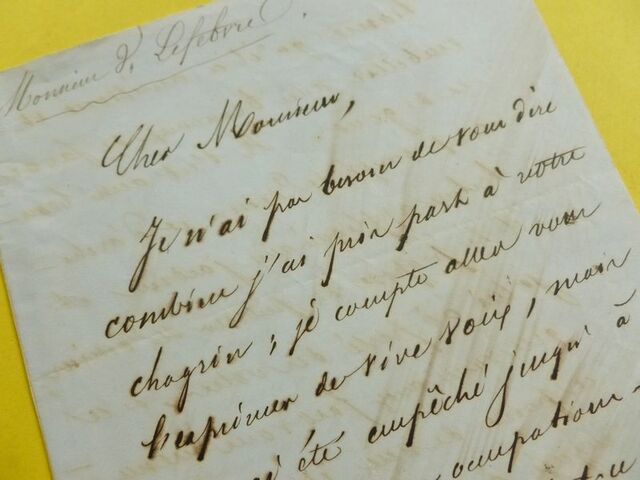 Monsieur D. Lefebvre
Cher Monsieur,
Je n'ai pas besoin de vous dire
combien j'ai pris part à votre
chagrin ; je compte aller vous
l'exprimer de vive voix, mais
j'ai été empêché jusqu'à
occupations